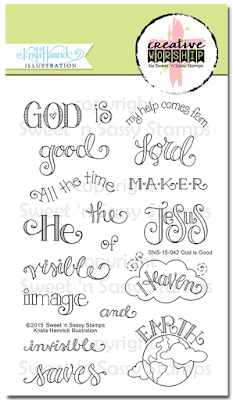 Krista Hamrick
ILLUSTRATION
creative
WORSHIP
by Sweet 'n Sassy Stamps
GOD is
good
All the time
He the
of
visible
image and
invisible
saves
my help comes from
Lord
MAKER
JESUS
SNS-15-042 God is Good
Heaven
EARTH
©2015 Sweet 'n Sassy Stamps
Krista Hamrick Illustration
Copyright
Sweet 'n Sassy Stamps